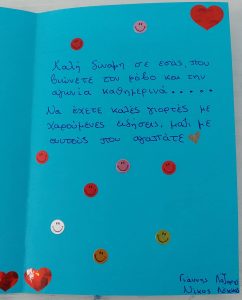 Καλή δύναμη σε εσάς, που
βιώνετε τον φόβο και την
αγωνία καθημερινά.....
Να έχετε καλές γιορτές με
χαρούμενες ειδήσεις, μαζί με
αυτούς που αγαπάτε
Γιάννης
Νίκος